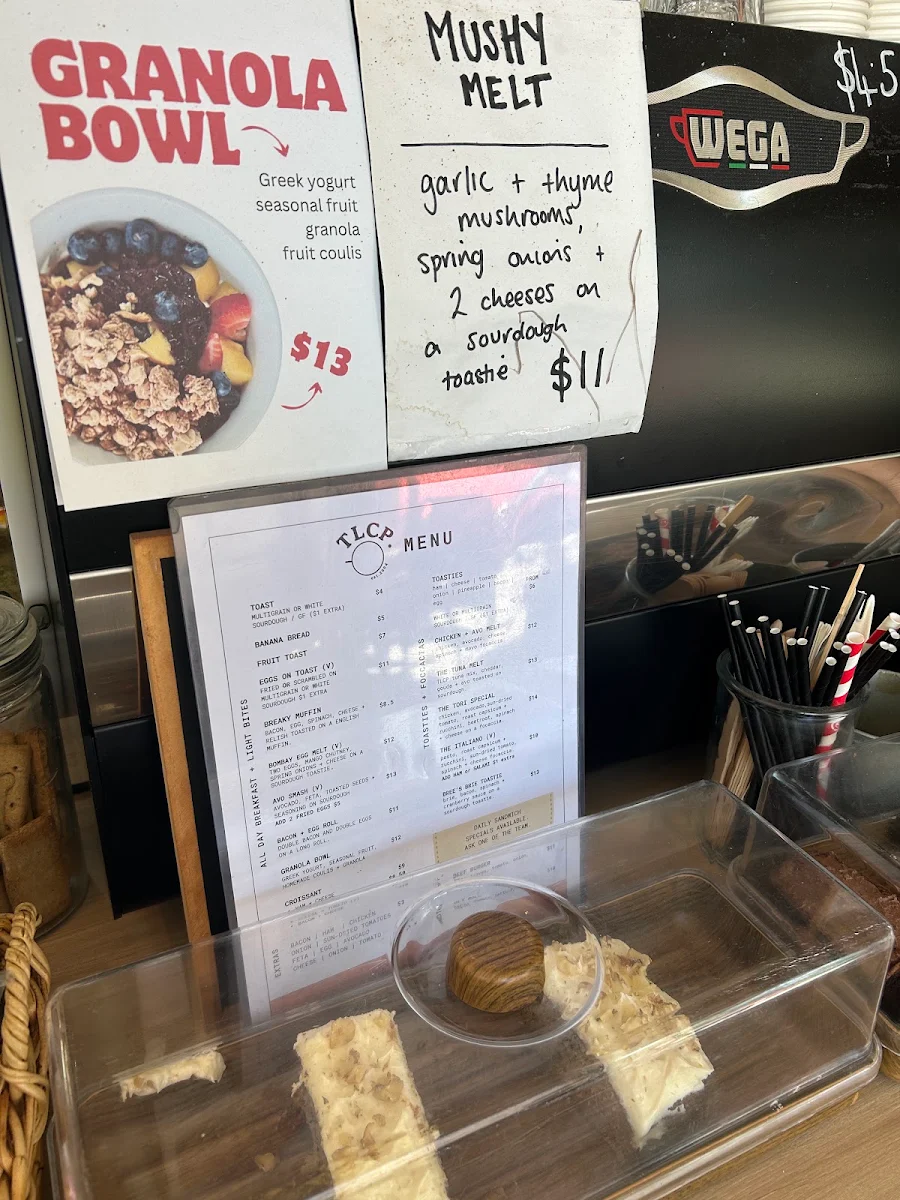 GRANOLA
BOWL
Greek yogurt
seasonal fruit
granola
fruit coulis
$13
MUSHY
MELT
garlic + thyme
mushrooms,
spring onions +
2 cheeses on
a sourdough
toastie $11
$4.5
WEGA
TLCP.
MENU
ALL DAY BREAKFAST + LIGHT BITES
TOAST $4
MULTIGRAIN OR WHITE
SOURDOUGH / GF ($1 EXTRA)
BANANA BREAD $5
FRUIT TOAST $7
EGGS ON TOAST (V) $11
FRIED OR SCRAMBLED ON
MULTIGRAIN OR WHITE
SOURDOUGH $1 EXTRA
BREAKY MUFFIN $8.5
BACON, EGG, SPINACH, CHEESE +
RELISH TOASTED ON A ENGLISH
MUFFIN.
BOMBAY EGG MELT (V) $12
TWO EGGS, MANGO CHUTNEY,
SPRING ONIONS + CHEESE ON A
SOURDOUGH TOASTIE.
AVO SMASH (V) $13
AVOCADO, FETA, TOASTED SEEDS +
SEASONING ON SOURDOUGH
ADD 2 FRIED EGGS $5
BACON + EGG ROLL $11
DOUBLE BACON AND DOUBLE EGGS
ON A LONG ROLL.
GRANOLA BOWL $12
GREEK YOGURT, SEASONAL FRUIT,
HOMEMADE COULIS + GRANOLA
CROISSANT
HAM + CHEESE
EXTRAS
BACON | HAM | CHICKEN
ONION | SUN-DRIED TOMATOES
FETA | EGG | AVOCADO
CHEESE | ONION | TOMATO
TOASTIES + FOCACCIAS
TOASTIES
ham | cheese | tomato
onion | pineapple | bacon
egg
FROM
WHITE OR MULTIGRAIN
CHICKEN + AVO MELT $12
chicken, avocado, cheese
THE TUNA MELT $13
sourdough
THE TORI SPECIAL $14
chicken, avocado, sun-dried
tomato, roast capsicum +
zucchini, beetroot, spinach
+ cheese on a focaccia
THE ITALIANO (V)
pesto, roast capsicum +
zucchini, sun-dried tomato,
spinach + cheese focaccia
ADD HAM or SALAMI $1 extra
BREE'S BRIE TOASTIE $13
brie, bacon, spinach +
cranberry sauce on a
sourdough toastie
DAILY SANDWICH
SPECIALS AVAILABLE.
ASK ONE OF THE TEAM